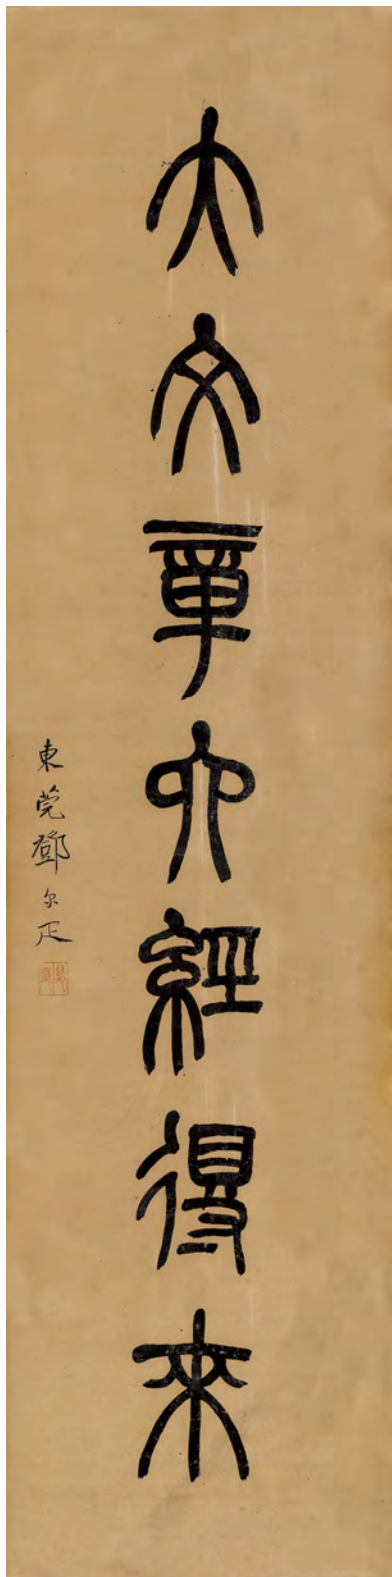 大文章六經得來
東莞鄧尔疋